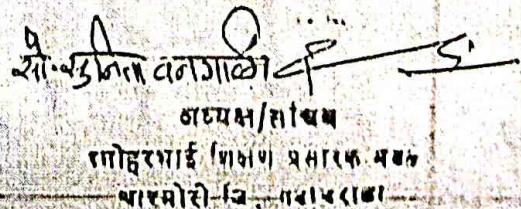 सौ. सुनिता वनमाळी
अध्यक्ष/सचिव
मनोहरभाई शिक्षण प्रसारक मंडळ
आरमोरी जि. गडचिरोली